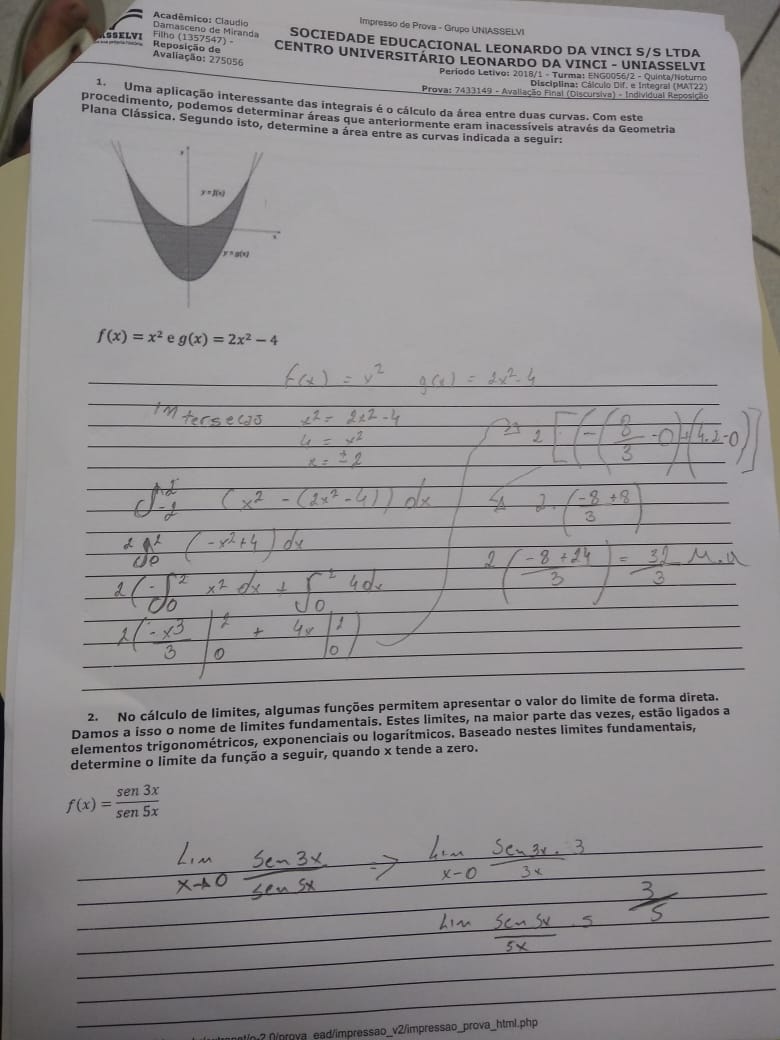 Impresso de Prova - Grupo UNIASSELVI
ASSELVI
Acadêmico: Claudio
Damasceno de Miranda
Filho (1357547) -
Reposição de
Avaliação: 275056
SOCIEDADE EDUCACIONAL LEONARDO DA VINCI S/S LTDA
CENTRO UNIVERSITÁRIO LEONARDO DA VINCI - UNIASSELVI
Período Letivo: 2018/1 - Turma: ENG0056/2 - Quinta/Noturno
Disciplina: Cálculo Dif. e Integral (MAT22)
Prova: 7433149 - Avaliação Final (Discursiva) - Individual Reposição
1. Uma aplicação interessante das integrais é o cálculo da área entre duas curvas. Com este
procedimento, podemos determinar áreas que anteriormente eram inacessíveis através da Geometria
Plana Clássica. Segundo isto, determine a área entre as curvas indicada a seguir:
y = f(x)
x
y = g(x)
f(x) = x² e g(x) = 2x² − 4
f(x) = x² g(x) = 2x²-4
Intersecao x² = 2x²-4
4 = x²
x = ±2
∫-2^2 (x² - (2x²-4)) dx
2 ∫0^2 (-x²+4) dx
2(-∫0^2 x² dx + ∫0^2 4dx
2(-x³/3 |0^2 + 4x |0^2)
2[(-(8/3 -0)+(4.2-0)]
2.(-8/3 +8)
2(-8+24/3) = 32/3 u.a
2. No cálculo de limites, algumas funções permitem apresentar o valor do limite de forma direta.
Damos a isso o nome de limites fundamentais. Estes limites, na maior parte das vezes, estão ligados a
elementos trigonométricos, exponenciais ou logarítmicos. Baseado nestes limites fundamentais,
determine o limite da função a seguir, quando x tende a zero.
f(x) = sen 3x / sen 5x
Lim x→0 Sen 3x / sen 5x => Lim x-0 Sen 3x / 3x . 3
Lim sen 5x / 5x . 5 3/5
2.0/prova_ead/impressao_v2/impressao_prova_html.php